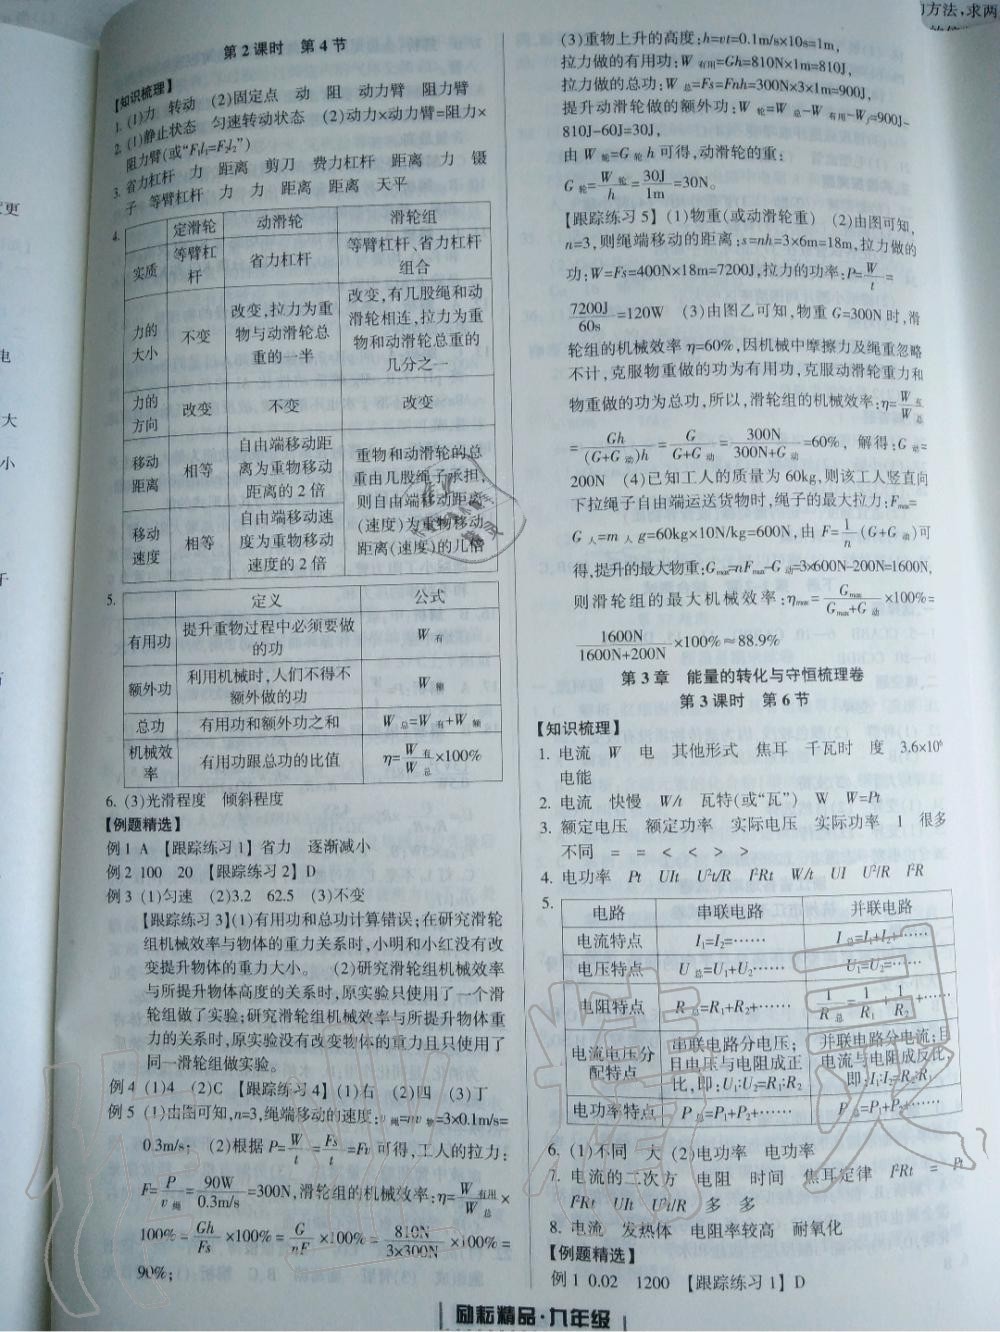 第2课时 第4节
【知识梳理】
1. (1)力 转动 (2)固定点 动 阻 动力臂 阻力臂
2. (1)静止状态 匀速转动状态 (2)动力×动力臂=阻力×
阻力臂(或“F₁l₁=F₂l₂”)
3. 省力杠杆 力 距离 剪刀 费力杠杆 距离 力 镊
子 等臂杠杆 力 力 距离 距离 天平
4.
定滑轮 动滑轮 滑轮组
实质 等臂杠杆 省力杠杆 等臂杠杆、省力杠杆组合
力的大小 不变 改变,拉力为重物与动滑轮总重的一半 改变,有几股绳和动滑轮相连,拉力为重物和动滑轮总重的几分之一
力的方向 改变 不变 改变
移动距离 相等 自由端移动距离为重物移动距离的2倍 重物和动滑轮的总重由几股绳子承担,则自由端移动距离(速度)为重物移动距离(速度)的几倍
移动速度 相等 自由端移动速度为重物移动速度的2倍
5.
定义 公式
有用功 提升重物过程中必须要做的功 W有
额外功 利用机械时,人们不得不额外做的功 W额
总功 有用功和额外功之和 W总=W有+W额
机械效率 有用功跟总功的比值 η=W有/W总×100%
6. (3)光滑程度 倾斜程度
【例题精选】
例1 A 【跟踪练习1】省力 逐渐减小
例2 100 20 【跟踪练习2】D
例3 (1)匀速 (2)3.2 62.5 (3)不变
【跟踪练习3】(1)有用功和总功计算错误;在研究滑轮
组机械效率与物体的重力关系时,小明和小红没有改
变提升物体的重力大小。 (2)研究滑轮组机械效率
与所提升物体高度的关系时,原实验只使用了一个滑
轮组做了实验;研究滑轮组机械效率与所提升物体重
力的关系时,原实验没有改变物体的重力且只使用了
同一滑轮组做实验。
例4 (1)4 (2)C 【跟踪练习4】(1)右 (2)四 (3)丁
例5 (1)由图可知,n=3,绳端移动的速度:v绳=nv物=3×0.1m/s=
0.3m/s; (2)根据P=W/t=Fs/t=Fv可得,工人的拉力:
F=P/v绳=90W/0.3m/s=300N,滑轮组的机械效率:η=W有用/W总×
100%=Gh/Fs×100%=G/nF×100%=810N/3×300N×100%=
90%;
(3)重物上升的高度:h=vt=0.1m/s×10s=1m,
拉力做的有用功:W有用=Gh=810N×1m=810J,
拉力做的总功:W总=Fs=Fnh=300N×3×1m=900J,
提升动滑轮做的额外功:W轮=W总-W有用-Wf=900J-
810J-60J=30J,
由W轮=G轮h可得,动滑轮的重:
G轮=W轮/h=30J/1m=30N。
【跟踪练习5】(1)物重(或动滑轮重) (2)由图可知,
n=3,则绳端移动的距离:s=nh=3×6m=18m,拉力做的
功:W=Fs=400N×18m=7200J,拉力的功率:P=W/t=
7200J/60s=120W (3)由图乙可知,物重G=300N时,滑
轮组的机械效率η=60%,因机械中摩擦力及绳重忽略
不计,克服物重做的功为有用功,克服动滑轮重力和
物重做的功为总功,所以,滑轮组的机械效率:η=W有/W总
=Gh/(G+G动)h=G/G+G动=300N/300N+G动=60%, 解得:G动=
200N (4)已知工人的质量为60kg,则该工人竖直向
下拉绳子自由端运送货物时,绳子的最大拉力:Fmax=
G人=m人g=60kg×10N/kg=600N,由F=1/n(G+G动)可
得,提升的最大物重:Gmax=nFmax-G动=3×600N-200N=1600N,
则滑轮组的最大机械效率:ηmax=Gmax/Gmax+G动×100%=
1600N/1600N+200N×100%≈88.9%
第3章 能量的转化与守恒梳理卷
第3课时 第6节
【知识梳理】
1. 电流 W 电 其他形式 焦耳 千瓦时 度 3.6×10⁶
电能
2. 电流 快慢 W/t 瓦特(或“瓦”) W W=Pt
3. 额定电压 额定功率 实际电压 实际功率 1 很多
不同 = = < < > >
4. 电功率 Pt UIt U²t/R I²Rt W/t UI U²/R I²R
5.
电路 串联电路 并联电路
电流特点 I₁=I₂=…… I总=I₁+I₂+……
电压特点 U总=U₁+U₂…… U₁=U₂=……
电阻特点 R总=R₁+R₂+…… 1/R总=1/R₁+1/R₂+……
电流电压分配特点 串联电路分电压;且电压与电阻成正比,即:U₁:U₂=R₁:R₂ 并联电路分电流;且电流与电阻成反比,即:I₁:I₂=R₂:R₁
电功率特点 P总=P₁+P₂+…… P总=P₁+P₂+……
6. (1)不同 大 (2)电功率 电功率
7. 电流的二次方 电阻 时间 焦耳定律 I²Rt = Pt
I²Rt UIt U²t/R 多 多
8. 电流 发热体 电阻率较高 耐氧化
【例题精选】
例1 0.02 1200 【跟踪练习1】D
励耘精品·九年级